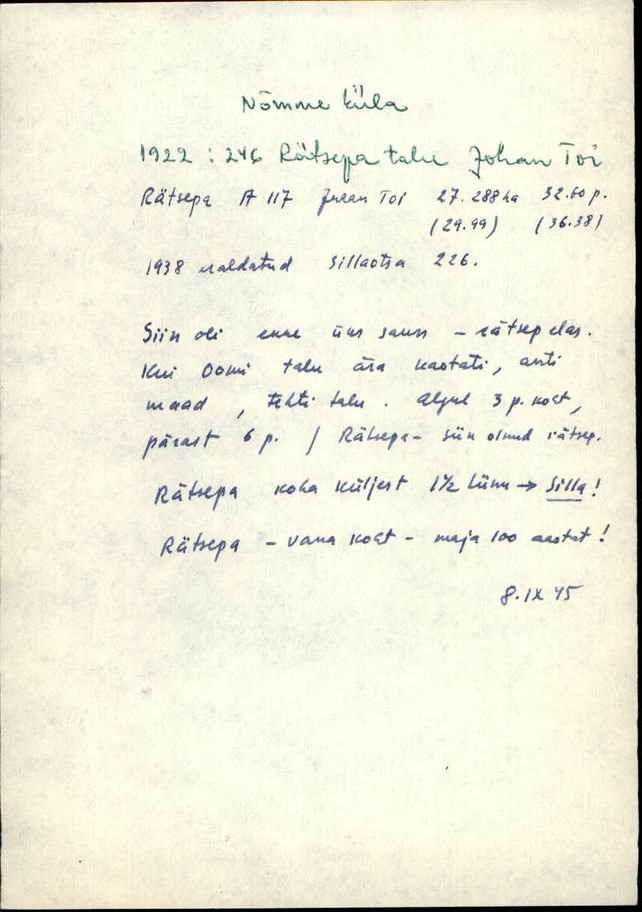 Nõmme küla
1922 : 246 Rätsepa talu Johan Toi
Rätsepa A 117 Juhan Toi 27.288 ha 32.60 p.
(29.99) (36.38)
1938 eraldatud Sillaotsa 226.
Siin oli enne üks saun – rätsep elas.
Kui Oomi talu ära kaotati, anti
maad, tehti talu. Algul 3 p. koht,
pärast 6 p. / Rätsepa – siin olnud rätsep.
Rätsepa koha küljest 1½ tiinu → Silla!
Rätsepa – vana koht – maja 100 aastat!
8.IX 45